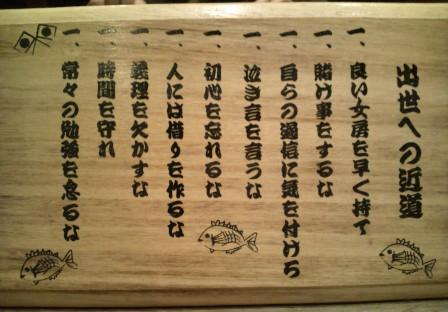 出世への近道
一、良い女房を早く持て
一、賭け事をするな
一、自らの過信に気を付けろ
一、泣き言を言うな
一、初心を忘れるな
一、人には借りを作るな
一、義理を欠かすな
一、時間を守れ
一、常々の勉強を怠るな